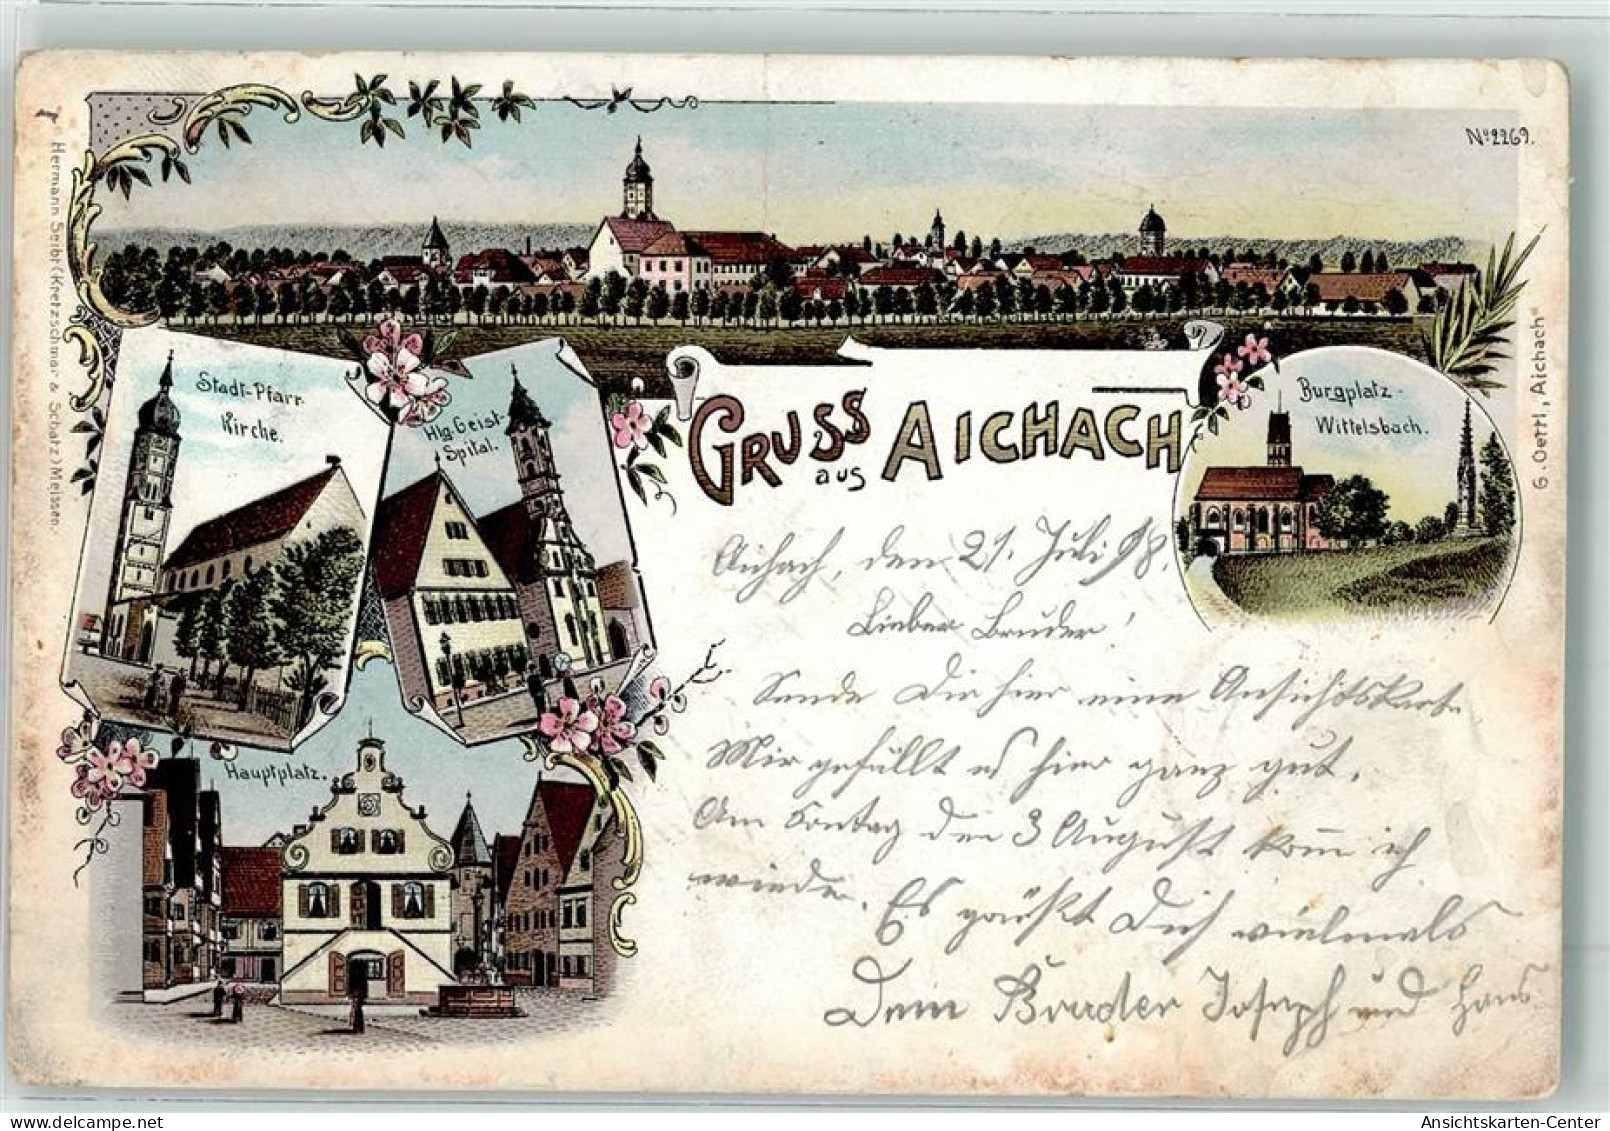 No 2269.
Hermann Seibt (Kretzschmar & Schatz) Meissen.
G. Oettl, Aichach"
Stadt-Pfarr-
Kirche.
Hlg. Geist-
Spital.
Burgplatz-
Wittelsbach.
GRUSS
aus AICHACH
Hauptplatz.
Aichach, den 21. Juli 98.
Lieber Bruder!
Sende Dir hier eine Ansichtskarte
Mir gefällt es hier ganz gut.
Am Sontag den 3 August kom̄ ich
wieder. Es grüßt Dich vielmals
Dein Bruder Joseph und Hans
Ansichtskarten-Center